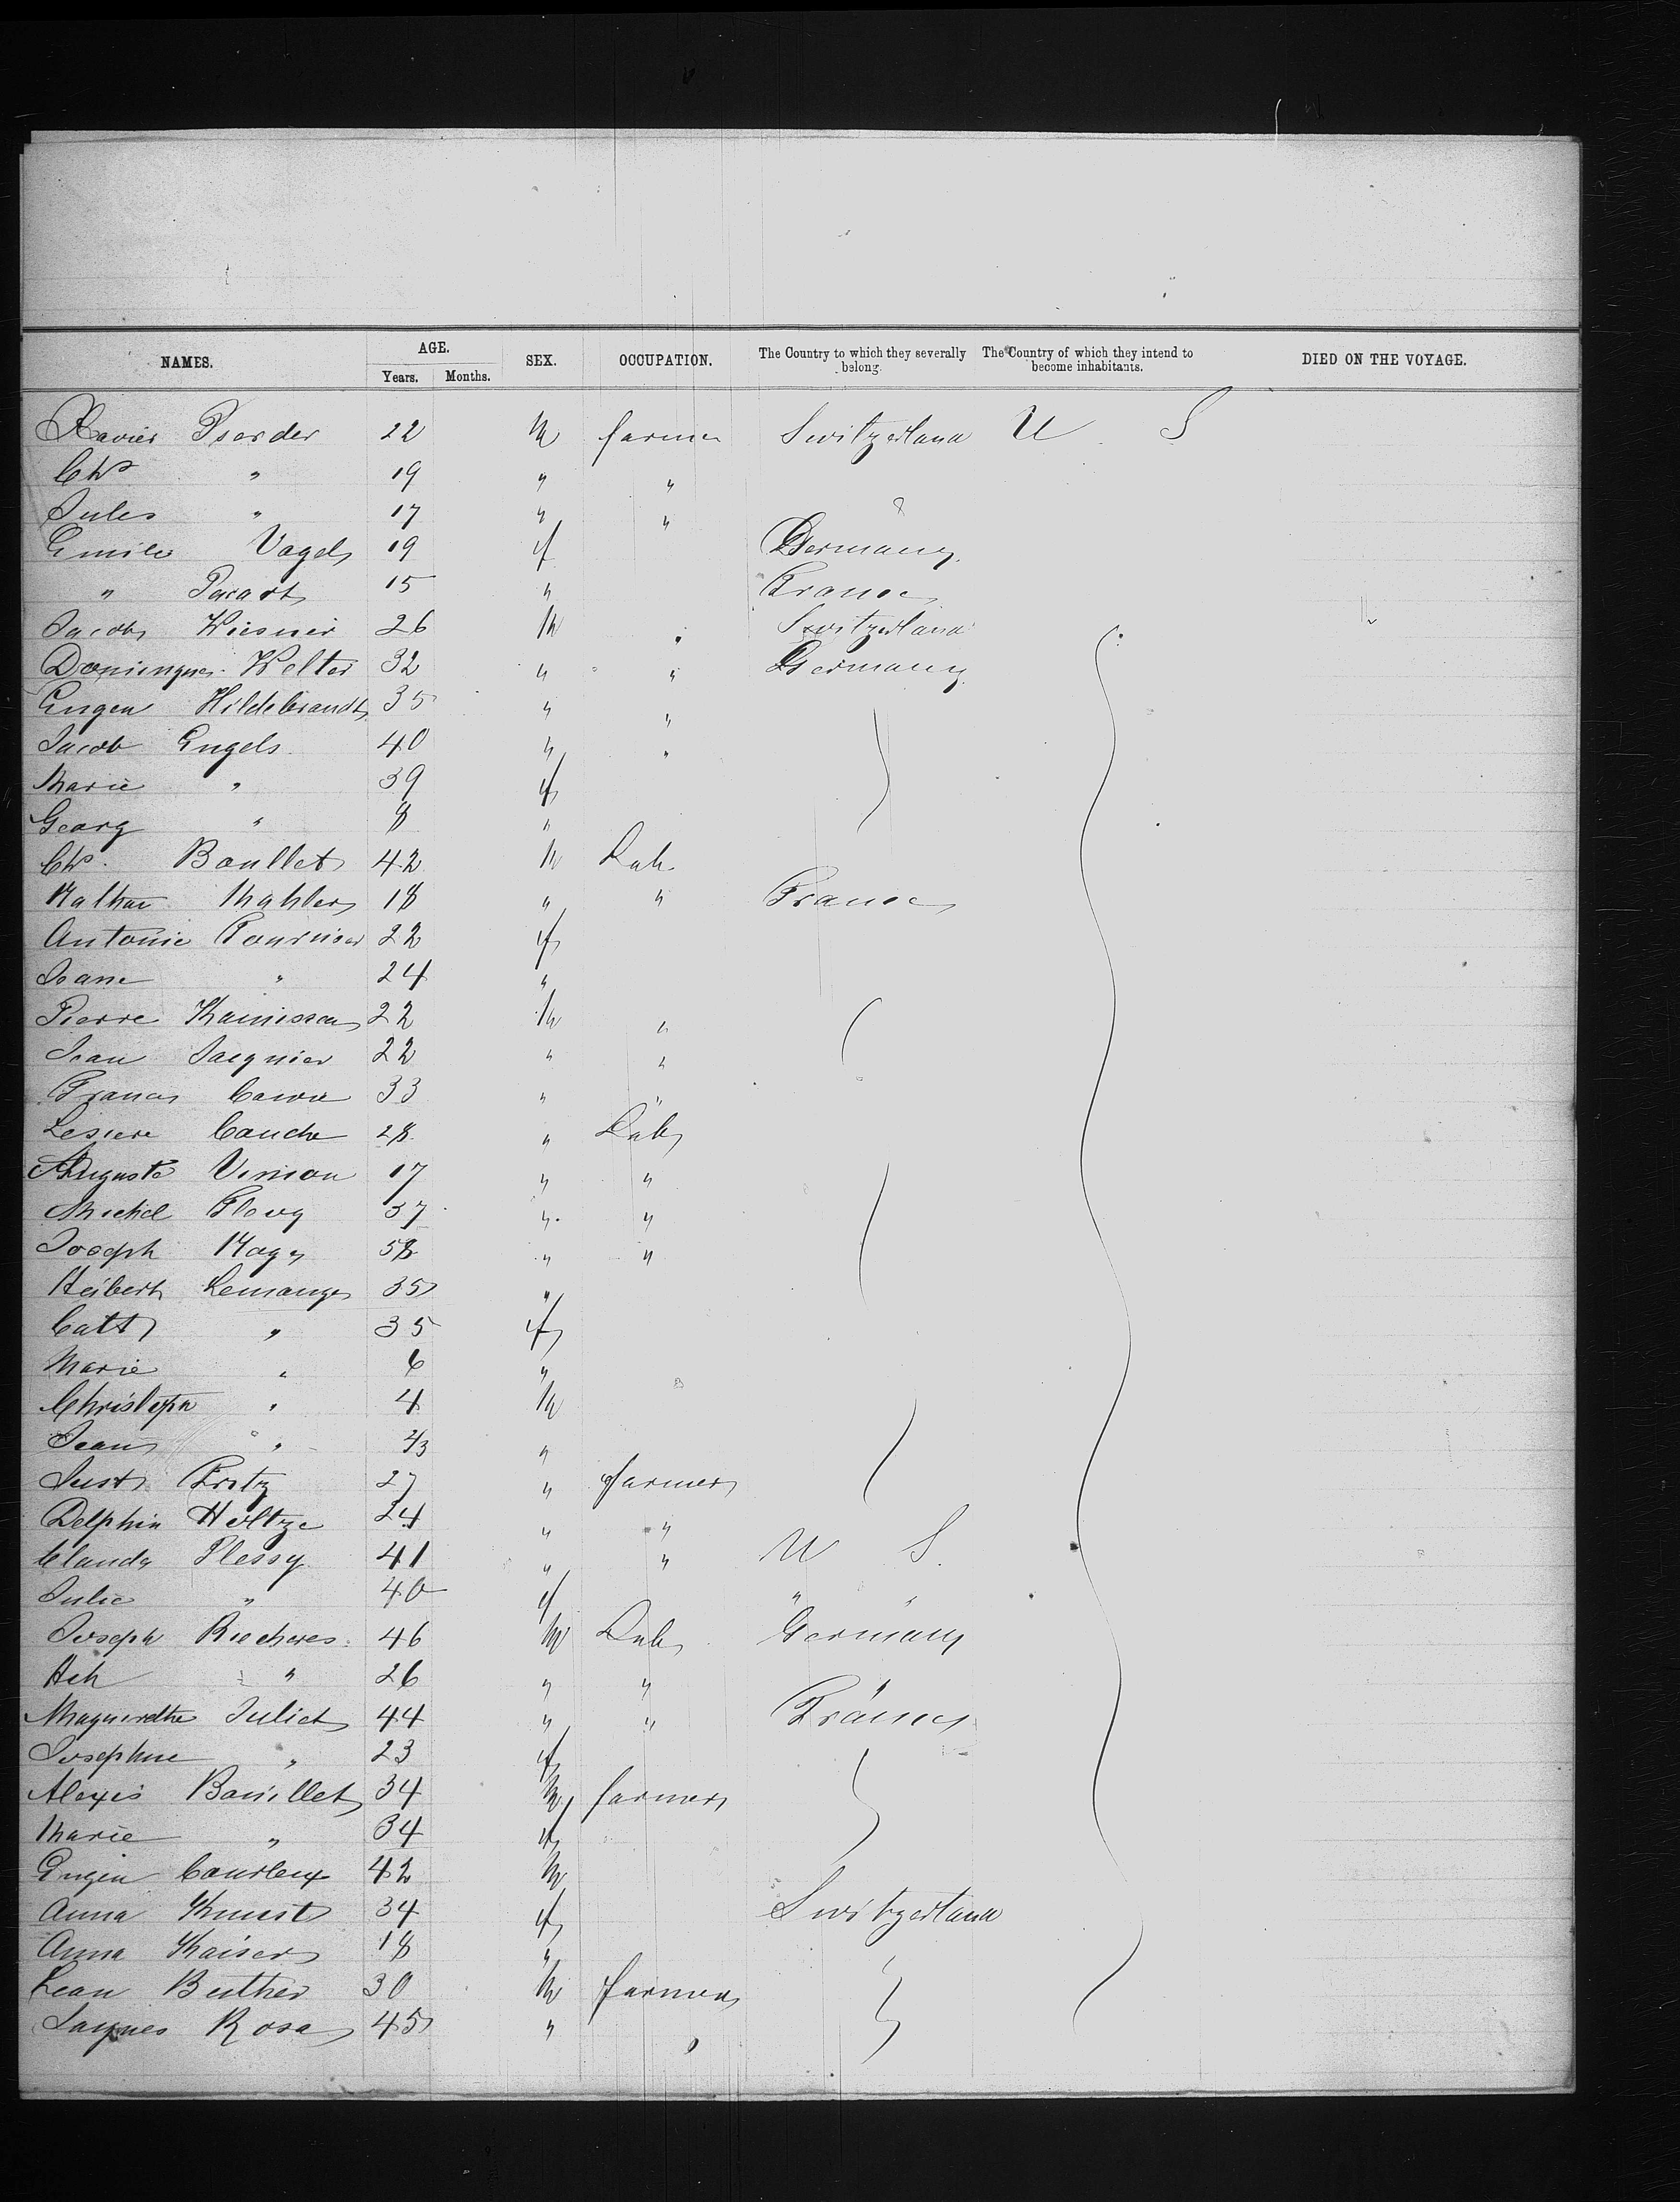 NAMES. AGE. SEX. OCCUPATION. The Country to which they severally belong. The Country of which they intend to become inhabitants. DIED ON THE VOYAGE.
Years. Months.
Xavier Pserder 22 M farmer Switzerland U S
Chs " 19 " "
Jules " 17 " "
Emile Vogel 19 f Germany
" Picart 15 " France
Jacob Wiesner 26 M " Switzerland
Dominique Welter 32 " " Germany
Eugen Hildebrandt 35 " "
Jacob Engels 40 " "
Marie " 39 f
Georg " 8 "
Chs. Boullet 42 M Lab
Nathan Mahler 18 " " France
Antonie Fournier 22 f
Jeane " 24 "
Pierre 22 M "
Jean Jacquier 22 " "
Francs 33 " "
Cauche 28 " Lab
Auguste Vinson 17 " "
Michel Floug 37 " "
Joseph Hagy 58 " "
Heibert Lemange 35 "
Cath " 35 f
Marie " 6 "
Christoph " 4 M
Jean " "
Just Fritz 27 " farmer
Delphin Heltze 24 " "
Claude Plessy 41 " " U S.
Julie " 40 f " "
Joseph Riecheres 46 M Lab Germany
Hch " 26 " " "
Juliet 44 " " France
Josephine " 23 f
Alexis Bouillet 34 M farmer
Marie " 34 f
Eugen 42 M
Anna Kunst 34 f Switzerland
Anna Kaiser 18 "
Lean Buther 30 M farmer
Rosa 45 " "